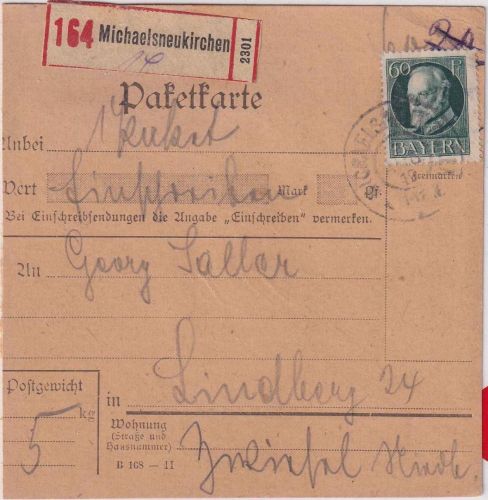 164 Michaelsneukirchen 2301
14
Paketkarte
60 Pf
BAYERN
Unbei 1 Paket
Wert Einschreiben Mark Pf.
Freimarke
Bei Einschreibsendungen die Angabe „Einschreiben" vermerken.
An Georg Saller
Postgewicht
5 kg
in Lindberg 24
Wohnung
(Straße und
Hausnummer)
Zwiesel
B 168 — II